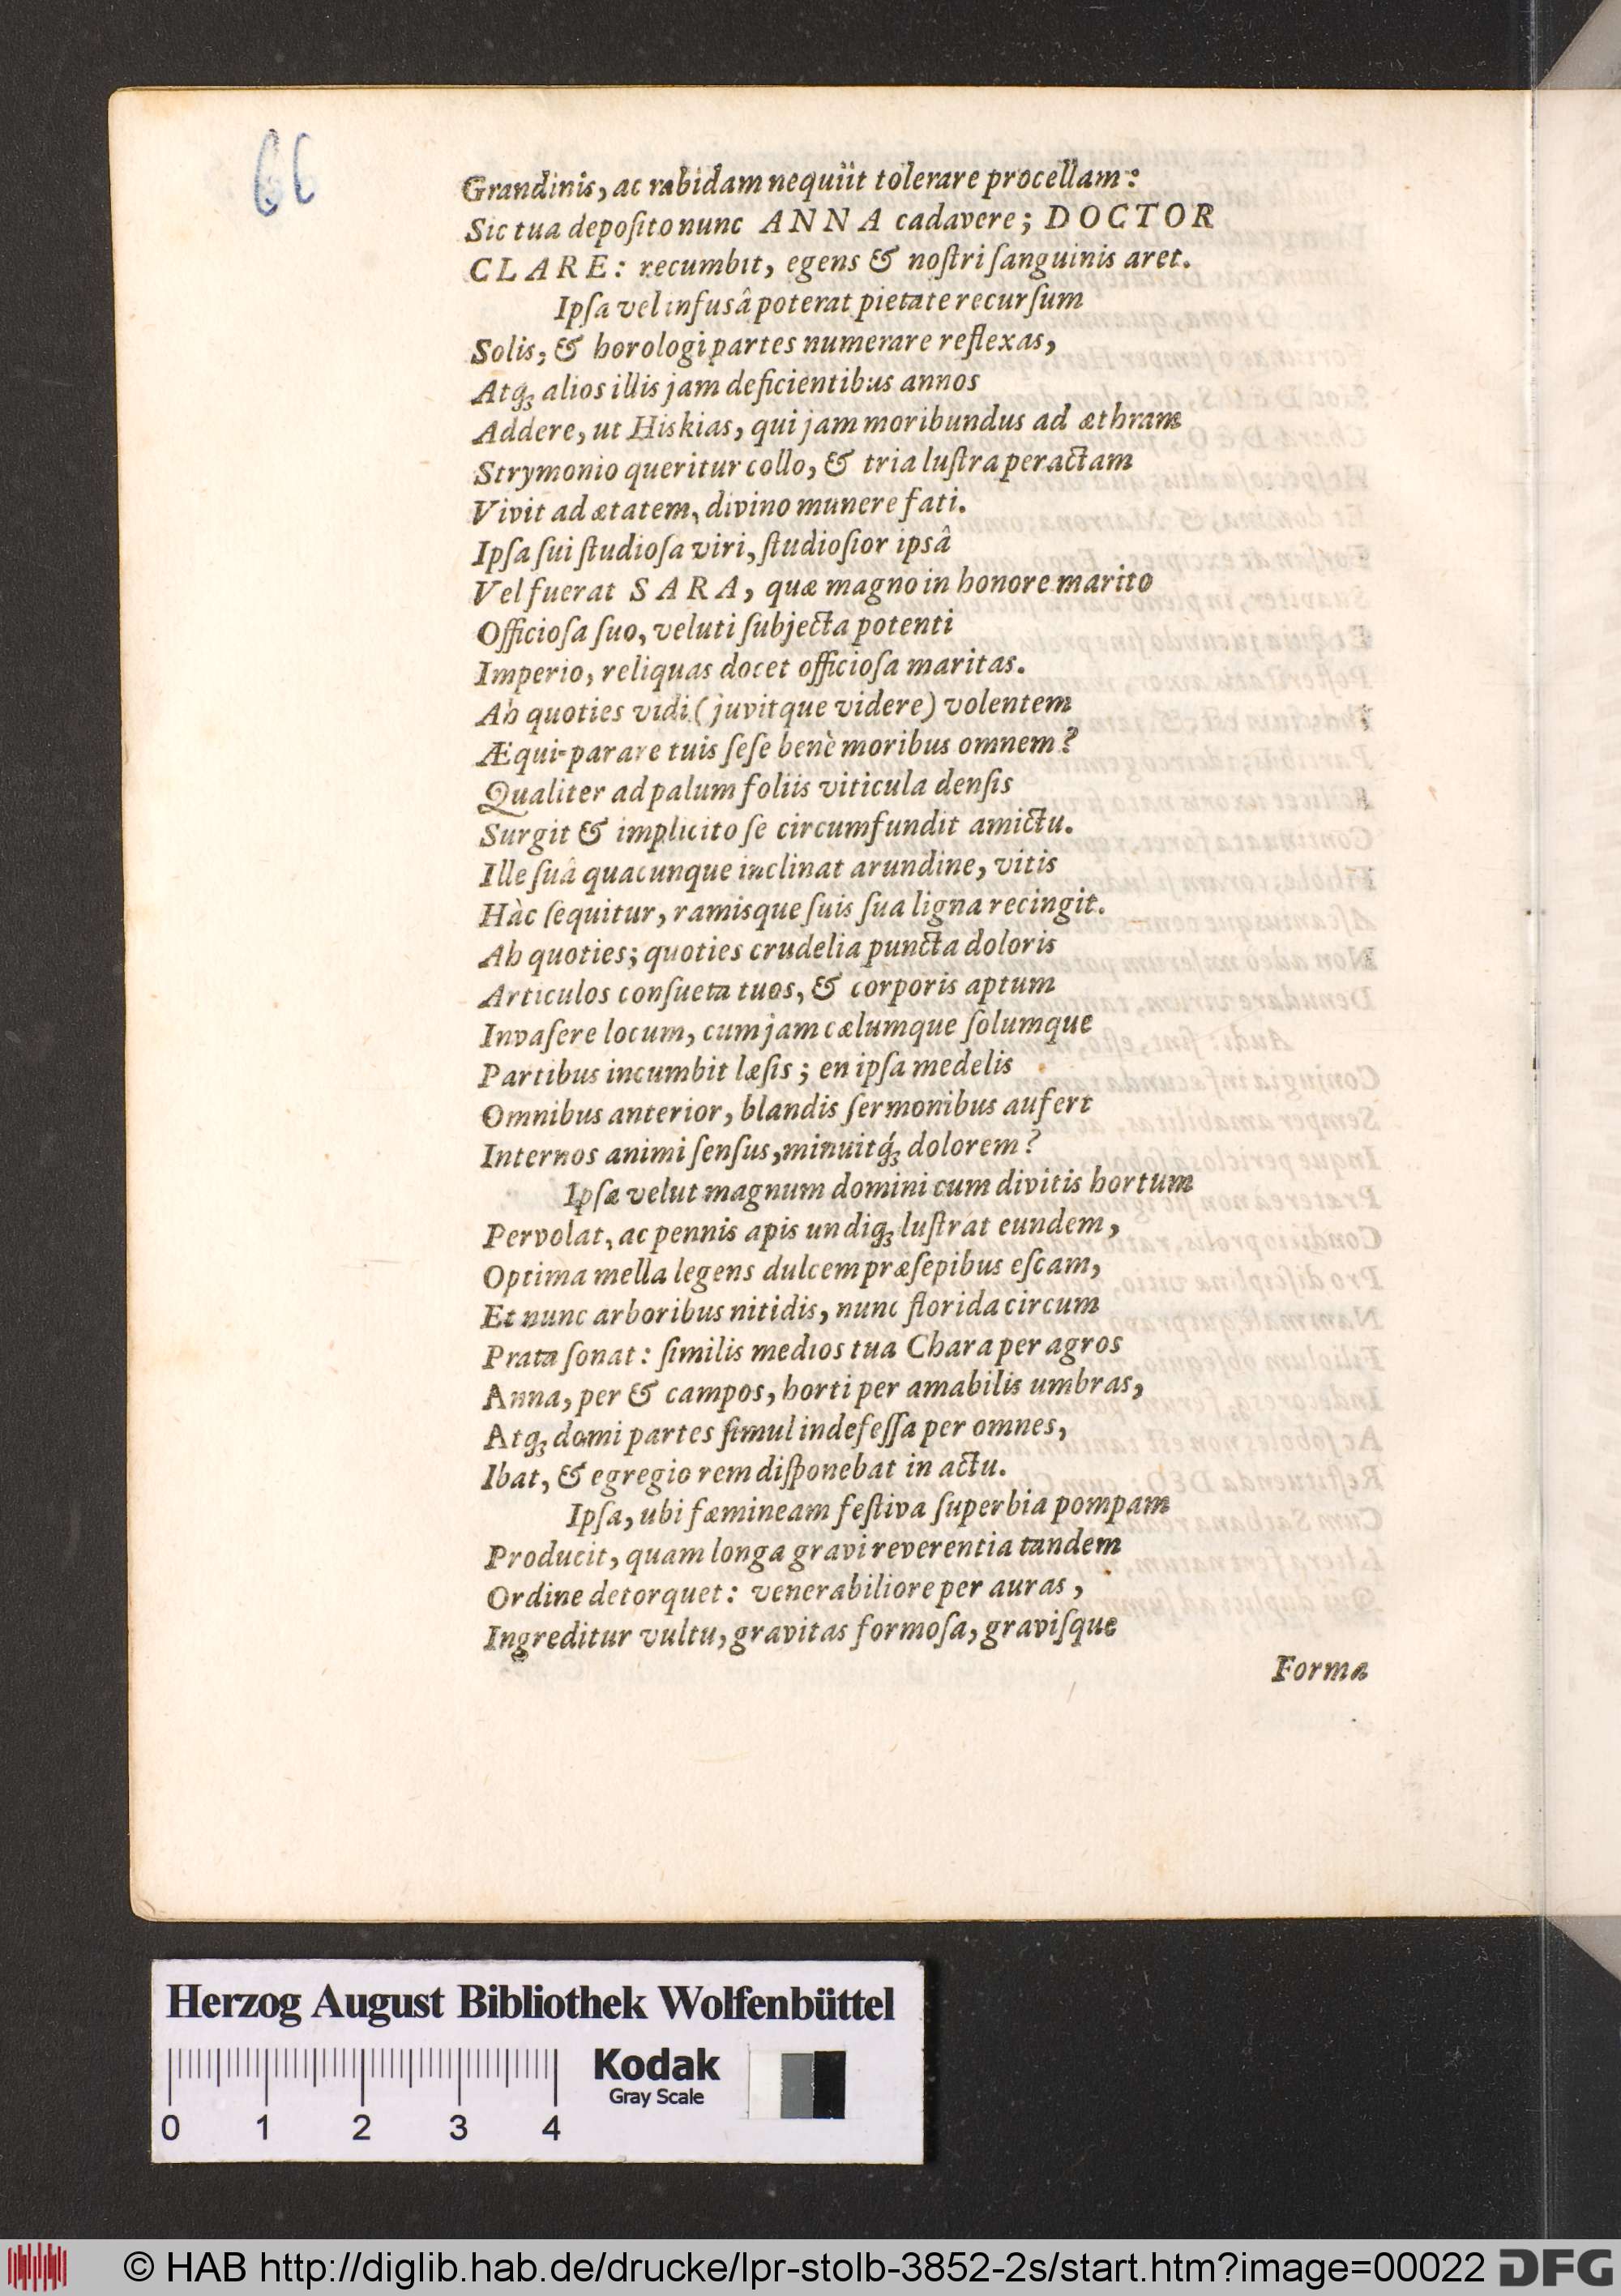 66
Grandinis, ac rabidam nequiit tolerare procellam:
Sic tua depoſito nunc ANNA cadavere; DOCTOR
CLARE: recumbit, egens & noſtri ſanguinis aret.
Ipſa vel infusâ poterat pietate recurſum
Solis, & horologi partes numerare reflexas,
Atq; alios illis jam deficientibus annos
Addere, ut Hiskias, qui jam moribundus ad æthram
Strymonio queritur collo, & tria luſtra peractam
Vivit ad ætatem, divino munere fati.
Ipſa ſui ſtudioſa viri, ſtudioſior ipsâ
Vel fuerat SARA, quæ magno in honore marito
Officioſa ſuo, veluti ſubjecta potenti
Imperio, reliquas docet officioſa maritas.
Ah quoties vidi (juvitque videre) volentem
Æqui-parare tuis ſeſe benè moribus omnem?
Qualiter ad palum foliis viticula denſis
Surgit & implicito ſe circumfundit amictu.
Ille ſuâ quacunque inclinat arundine, vitis
Hàc ſequitur, ramisque ſuis ſua ligna recingit.
Ah quoties; quoties crudelia puncta doloris
Articulos conſueta tuos, & corporis aptum
Invaſere locum, cum jam cælumque ſolumque
Partibus incumbit læſis; en ipſa medelis
Omnibus anterior, blandis ſermonibus aufert
Internos animi ſenſus, minuitq́; dolorem?
Ipſæ velut magnum domini cum divitis hortum
Pervolat, ac pennis apis undiq; luſtrat eundem,
Optima mella legens dulcem præſepibus eſcam,
Et nunc arboribus nitidis, nunc florida circum
Prata ſonat: ſimilis medios tua Chara per agros
Anna, per & campos, horti per amabilis umbras,
Atq; domi partes ſimul indefeſſa per omnes,
Ibat, & egregio rem diſponebat in actu.
Ipſa, ubi fæmineam feſtiva ſuperbia pompam
Producit, quam longa gravi reverentia tandem
Ordine detorquet: venerabiliore per auras,
Ingreditur vultu, gravitas formoſa, graviſque
Forma
Herzog August Bibliothek Wolfenbüttel
Kodak
Gray Scale
0 1 2 3 4
© HAB http://diglib.hab.de/drucke/lpr-stolb-3852-2s/start.htm?image=00022 DFG